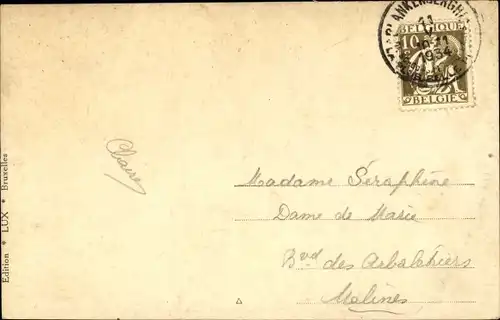 BLANKENBERGHE
11
1934
BELGIQUE
10c
BELGIE
Claire
Madame Séraphine
Dame de Marie
Bvd des Arbalétriers
Malines
Edition * LUX * Bruxelles